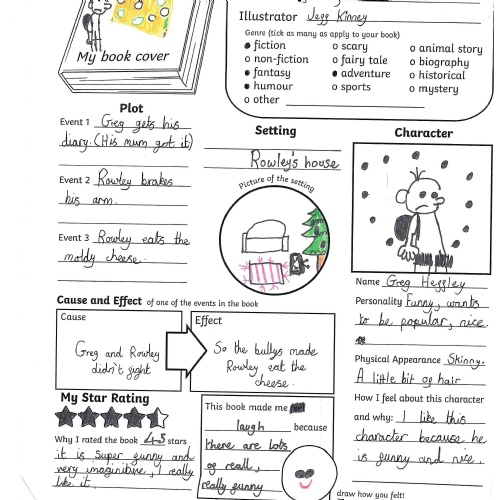 Illustrator Jeff Kinney
My book cover
Genre (tick as many as apply to your book)
fiction
o scary
o animal story
o non-fiction
o fairy tale
o biography
fantasy
adventure
o historical
humour
o sports
o mystery
o other
Plot
Event 1 Greg gets his
diary. (His mum got it)
Event 2 Rowley brakes
his arm.
Event 3 Rowley eats the
moldy cheese.
Setting
Rowley's house
Picture of the setting
Character
Name Greg Heffley
Personality Funny, wants
to be popular, nice.
Physical Appearance Skinny.
A little bit of hair
How I feel about this character
and why: I like this
character because he
is funny and nice.
draw how you felt!
Cause and Effect of one of the events in the book
Cause
Greg and Rowley
didn't fight
Effect
So the bullys made
Rowley eat the
cheese.
My Star Rating
Why I rated the book 4.5 stars
it is super funny and
very imaginitive, I really
like it.
This book made me
laugh because
there are lots
of reall,
really funny